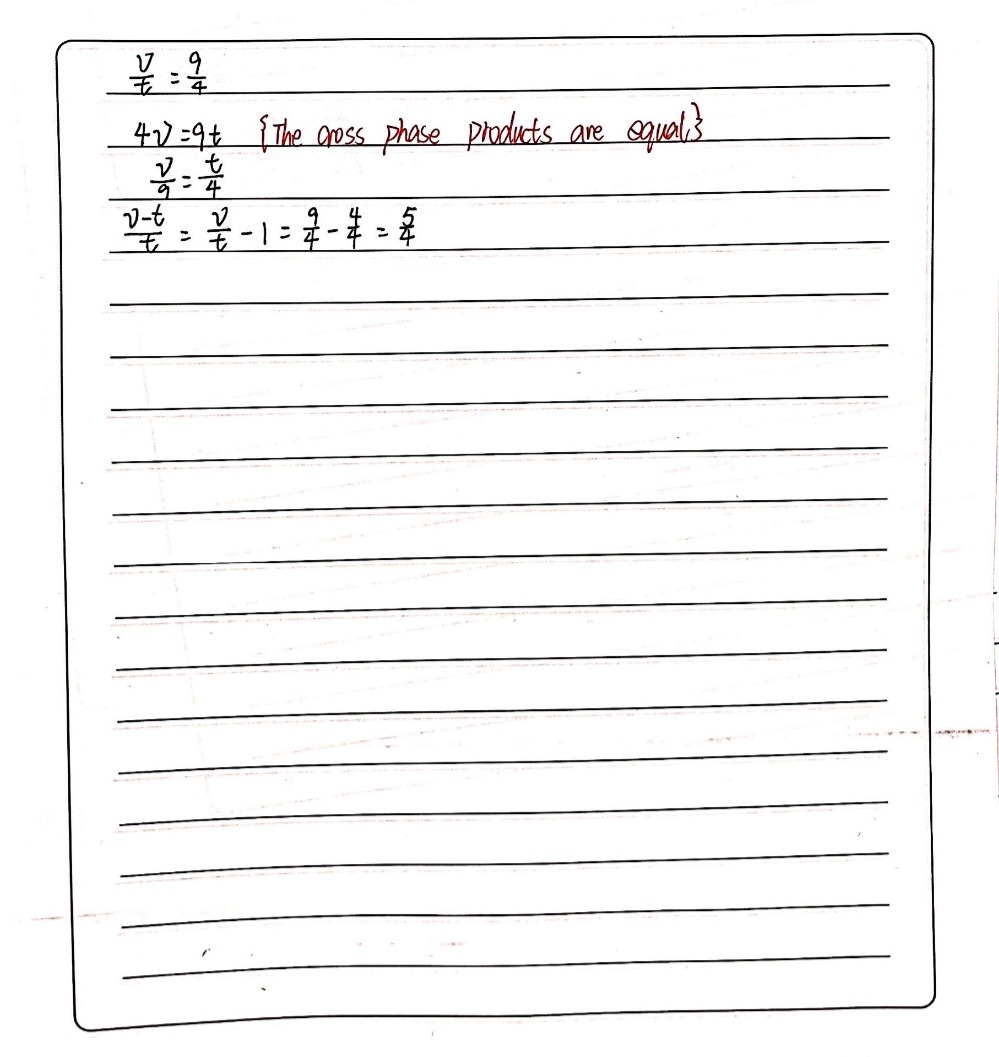 v/t = 9/4
4v = 9t {The cross phase products are equal.}
v/9 = t/4
v-t/t = v/t - 1 = 9/4 - 4/4 = 5/4